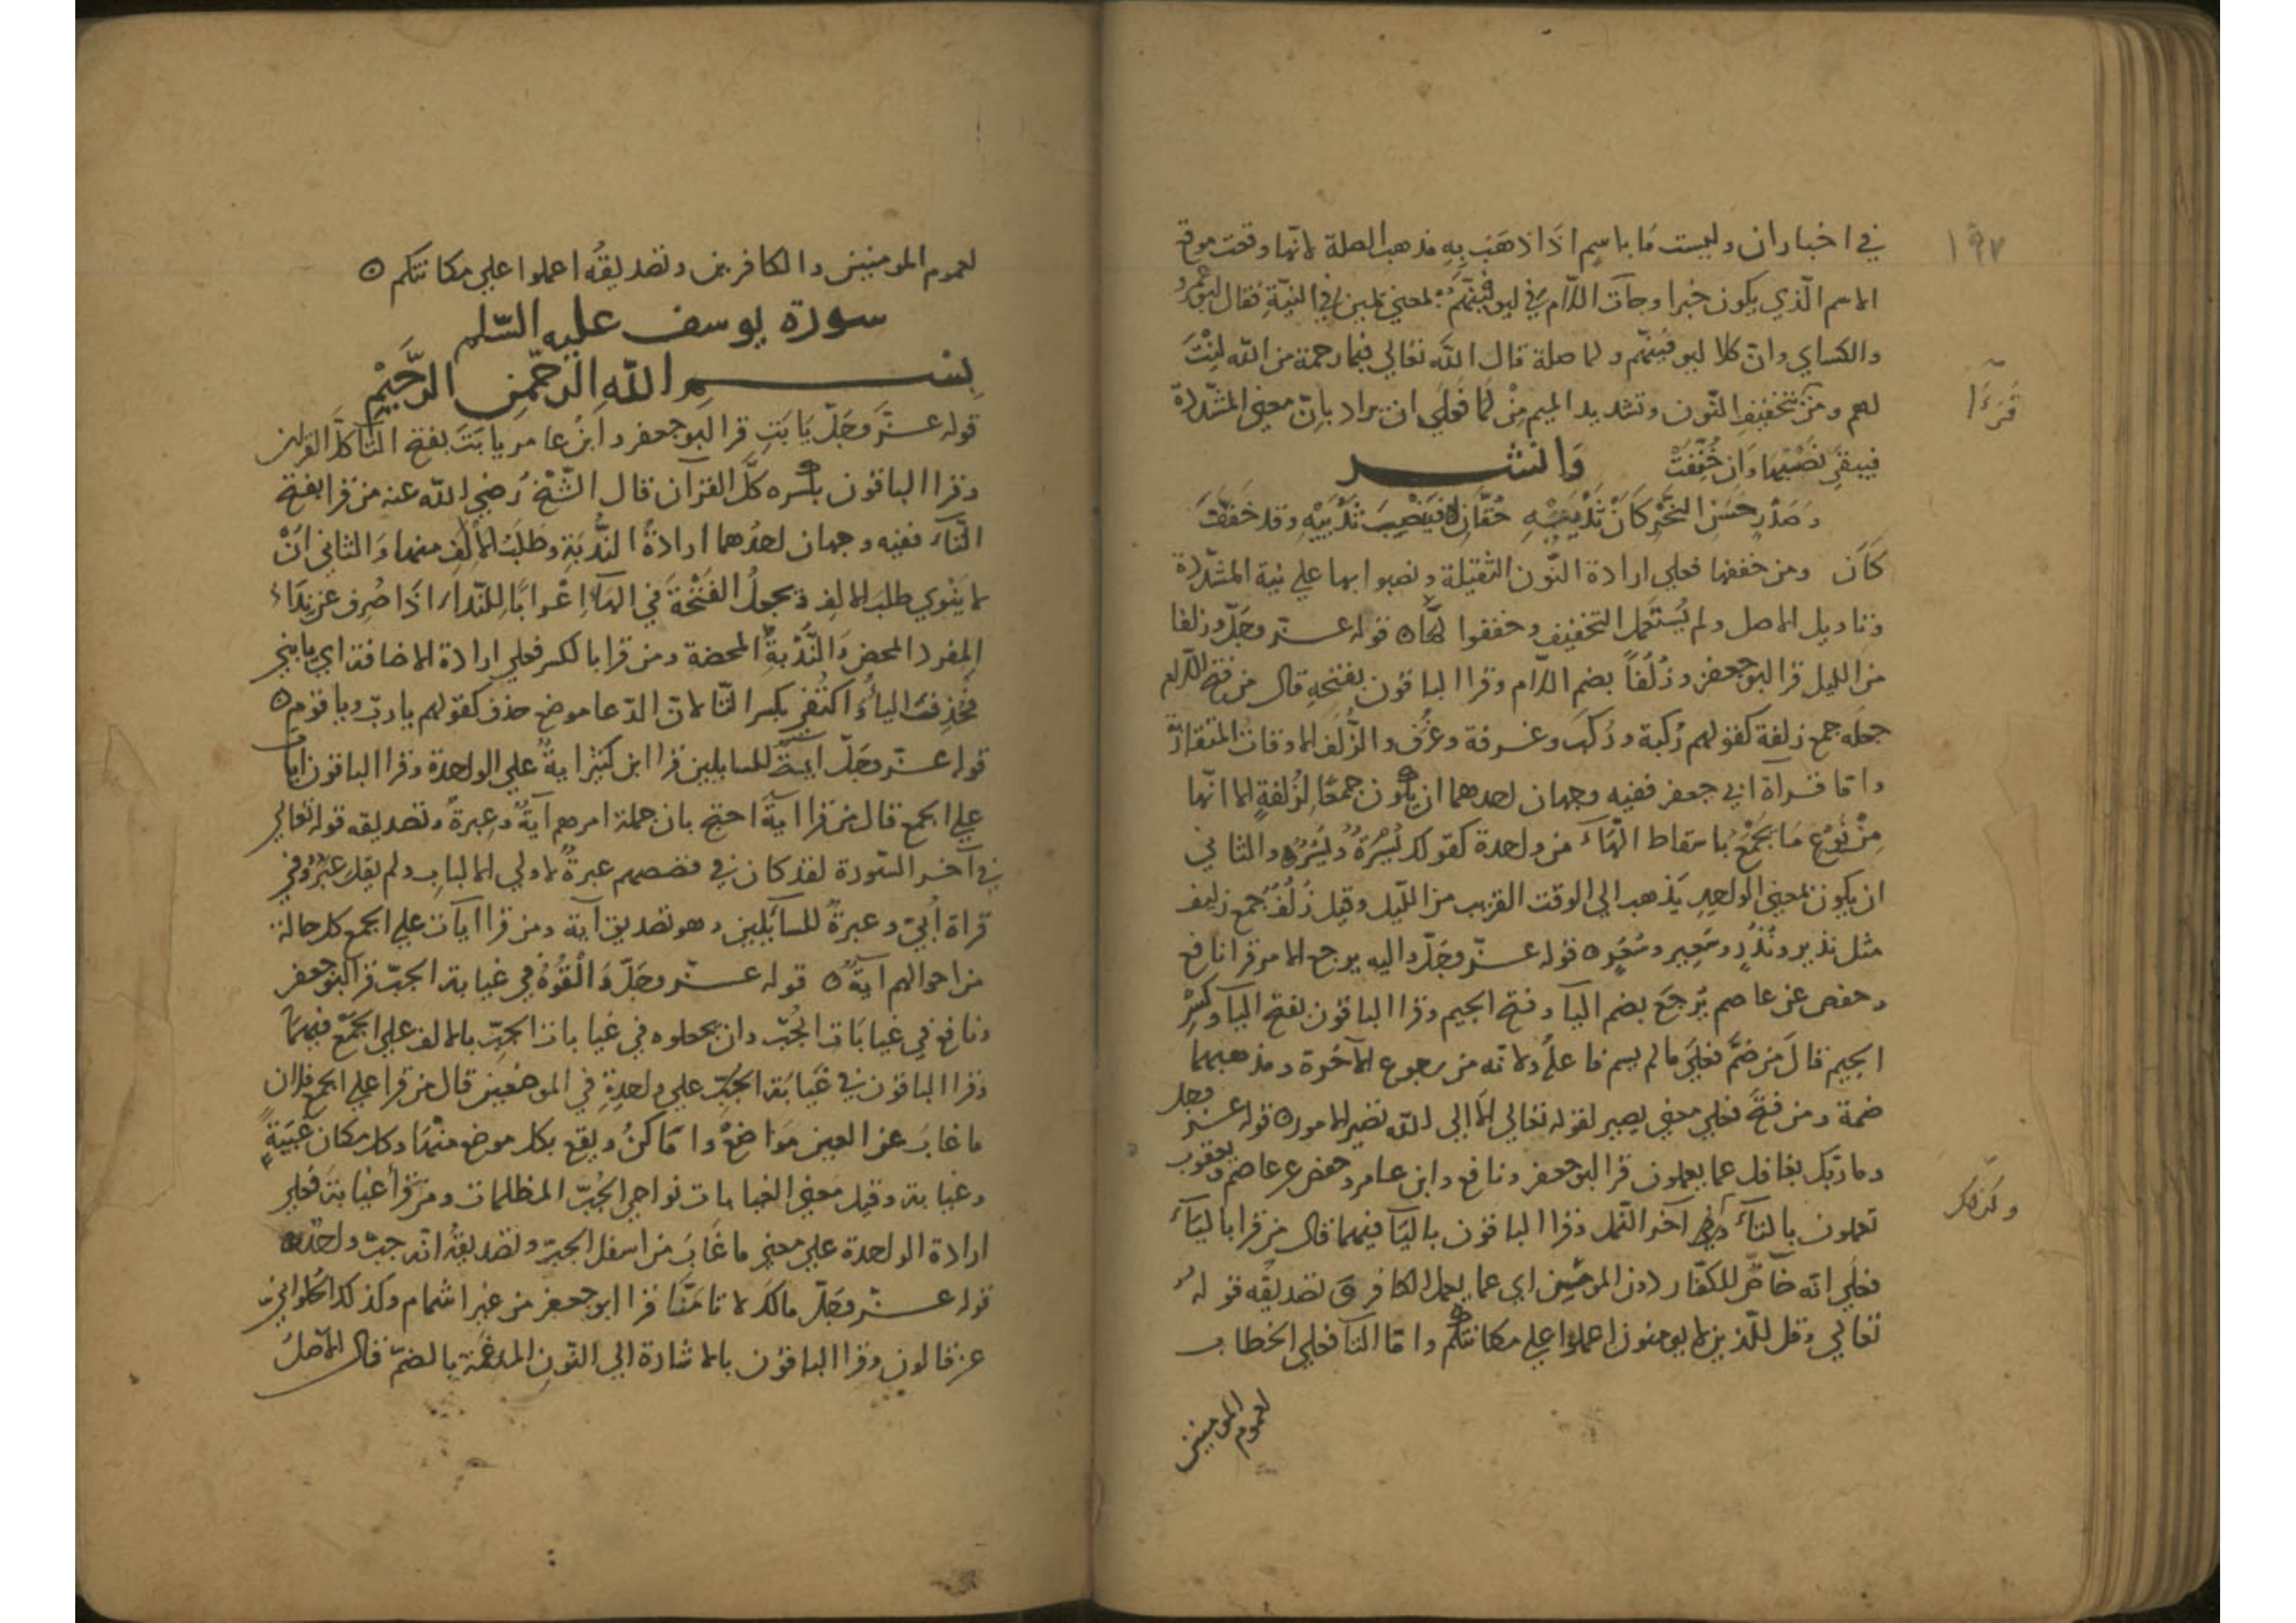 ١٩٧
في اخبار ان وليست ما باسم اذا ذهب به مذهب الصلة لانها وقعت موقع
الاسم الّذي يكون خبرا وجآت اللّام في ليوفينّهم بمعني اليمين في النيّة فقال ابو عمرو
والكساي وانّ كلا ليوفينّهم وما صلة قال اللّه تعالي فبما رحمة من اللّه لنت
لهم ومن قرأ بتخفيف النّون وتشديد الميم من لمّا فعلي ان يراد بانّ معني المشدّدة
قرأ
فيبقي نصبها وان خُفّفت وانشد
وصدر حسن النحر كان ثدييه حقّان فنصب ثدييه وقد خفّفت
كأن ومن خففها فعلي ارادة النّون الثقيلة ونصبوا بها علي نية المشدّدة
وتاويل الاصل ولم يُستعمل التخفيف وخففوا لمّا ٥ قوله عزّ وجلّ وزلفا
من الليل قرا ابو جعفر وزُلُفاً بضم اللّام وقرا الباقون بفتحه قال من فتح اللّام
جعله جمع زلفة كقولهم رُكبة ورُكَب وغرفة وغُرَف والزُّلَف الاوقات المتقاربة
واما قرآة ابي جعفر ففيه وجهان احدهما ان يكون جمعًا لزُلفةٍ الا انّها
من نوع ما يُجمع باسقاط الهآء من واحدة كقولك بُسُرةٌ وبُسُرٌ والثاني
ان يكون بمعني الواحد يذهب الي الوقت القريب من اللّيل وقيل زُلُفٌ جمع زليف
مثل نذير ونُذُرٍ وسَعير وسُعُرٍ ٥ قوله عزّ وجلّ واليه يرجع الامر قرا نافع
وحفص عن عاصم يُرجَع بضم اليآ وفتح الجيم وقرا الباقون بفتح اليآ وكسْر
الجيم قال من ضمّ فعلي ما لم يسم فاعلُه ولانه من رجوع الآخرة ومذهبهما
ضمة ومن فتح فعلي معني يصير لقوله تعالي الا الي اللّه تصير الامور ٥ قوله عزّ وجل
وما ربّك بغافل عما يعملون قرا ابو جعفر ونافع وابن عامر وحفص عن عاصم ويعقوب
تعملون بالتآء وكذلك في آخر النّمل وقرا الباقون باليآ فيهما قال من قرا باليآء
وكذلك
فعلي انه خاصّ للكفّار دون المومنين اي عما يعمل الكافرون تصديقه قوله
تعالي وقل للّذين لا يومنون اعملوا علي مكانتكم واما التآ فعلي الخطاب
لعموم المومنين
لعموم المومنين والكافرين وتصديقُه اعملوا علي مكانتكم ٥
سورة يوسف عليه السّلم
بسم اللّه الرحمن الرّحيم
قوله عزّ وجَلّ يا بَتِ قرا ابو جعفر وابن عامر يا بَتَ بفتح التآ كلَّ القرآن
وقرا الباقون بكسره كلَّ القرآن قال الشّيخ رضي اللّه عنه من قرا بفتح
التّآء ففيه وجهان احدُهما ارادةُ النُّدبَةِ وطلَبُ الألف منها والثاني انْ
لا ينوي طلب الالف ويجعلُ الفتحة في الهآء اعرابًا للنّدآء اذا صُرِف عن نداء
المفرد المحض والنُّدبة المحضة ومن قرا بالكسر فعلي ارادة الاضافة اي يا بتي
فحُذِفت الياءُ واكتُفي بكسر التّا لانّ الدّعا موضع حذف كقولهم يا ربّ ويا قوم ٥
قوله عزّ وجلّ آيةٌ للسايلين قرا ابن كثير آيةٌ علي الواحدة وقرا الباقون آيات
علي الجمع قال من قرا آيةٌ احتج بان جملة امرهم آيةٌ وعبرةٌ وتصديقه قوله تعالي
في آخر السّورة لقد كان في قصصهم عبرةٌ لاولي الالباب ولم يقل عِبَرٌ وفي
قراة اُبيّ وعبرةٌ للسآيلين وهو تصديق آية ومن قرا آيات علي الجمع كل حالة
من احوالهم آيةٌ ٥ قوله عزّ وجلّ وَالْقُوْهُ في غيابة الجبّ قرا ابو جعفر
ونافع في غيابَات الجُبّ وان يجعلوه في غيابات الجبّ بالالف علي الجَمْع فيهما
وقرا الباقون في غَيابَة الجُبّ علي واحدةٍ في الموضعين قال من قرا علي الجمع فلان
ما غابَ عن العين مواضعٌ واماكنُ ويقع بكل موضع منها وكل مكان غَيبَةٌ
وغيابة وقيل معني الغيابات نواحي الجُبّ المظلمات ومن قرأ غيابة فعلي
ارادة الواحدة علي معني ما غابَ من اسفل الجبّ وتصديقُه انّه جبّ واحد ٥
قوله عزّ وجلّ مالك لا تامنّا قرا ابو جعفر من غير اشمام وكذلك الحُلواني
عن قالون وقرا الباقون بالاشارة الي النّون المدغمة بالضمّ قال الاصلُ